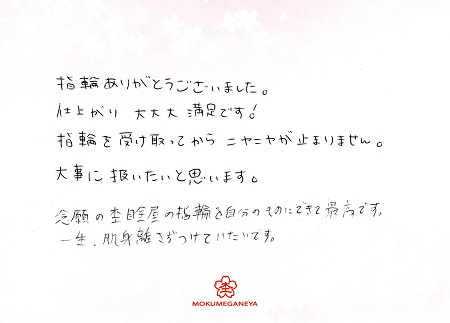 指輪ありがとうございました。
仕上がり 大大大 満足です!
指輪を受け取ってから ニヤニヤが止まりません。
大事に扱いたいと思います。
念願の杢目金屋の指輪を自分のものにできて最高です。
一生、肌身離さずつけていたいです。
MOKUMEGANEYA